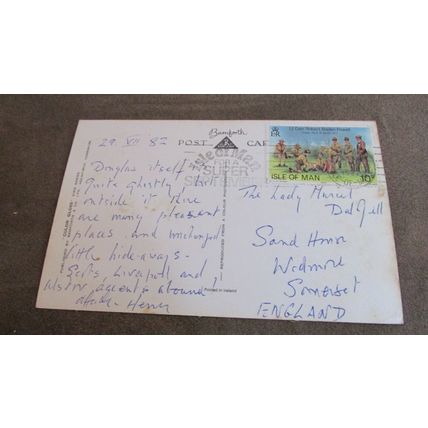 29. VII '82
Douglas itself
quite ghostly but
outside it there
are many pleasant
places and unchanged
little hideaways.
Scots, Liverpool and
Ulster accents abound!
Henry
Bamforth
POST CARD
Isle of Man
FOR A
SUPER
ISLE OF MAN 10
The Lady Muriel
Sand House
Wedmore
Somerset
ENGLAND
Printed in Ireland